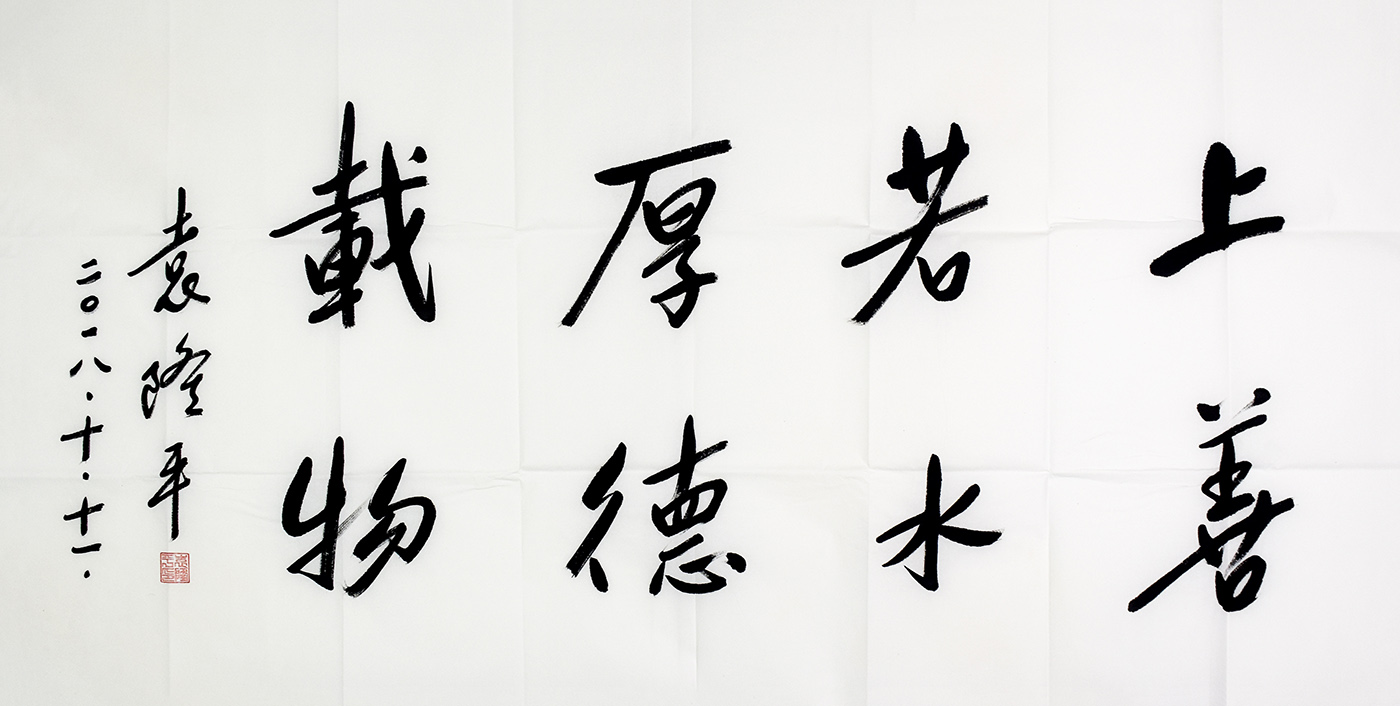 上善
若水
厚德
載物
袁隆平
二〇一八·十·十一·